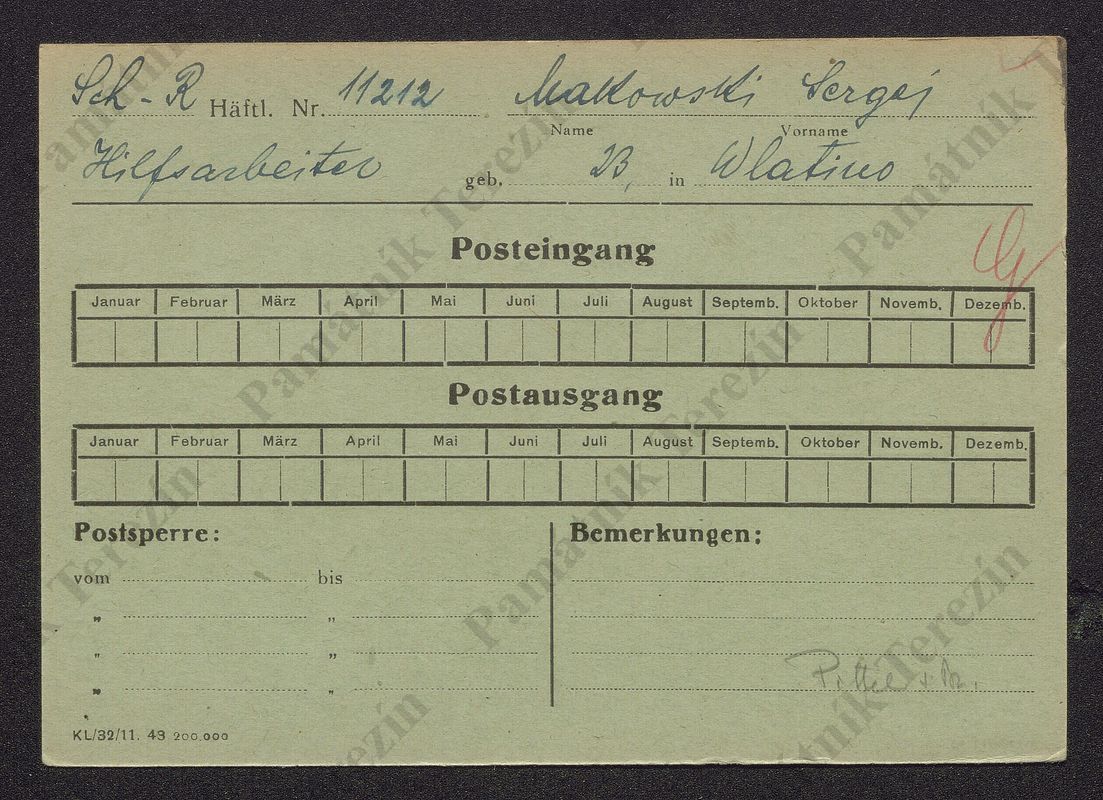 Sch - R Häftl. Nr. 11212 Makowski Sergej
Name Vorname
Hilfsarbeiter geb. 23, in Wlatino
Posteingang
Januar Februar März April Mai Juni Juli August Septemb. Oktober Novemb. Dezemb.
Postausgang
Januar Februar März April Mai Juni Juli August Septemb. Oktober Novemb. Dezemb.
Postsperre: Bemerkungen:
vom bis
" "
" "
" "
KL/32/11. 43 200.000
Památník Terezín
Památník Terezín
Památník Terezín
Památník Terezín